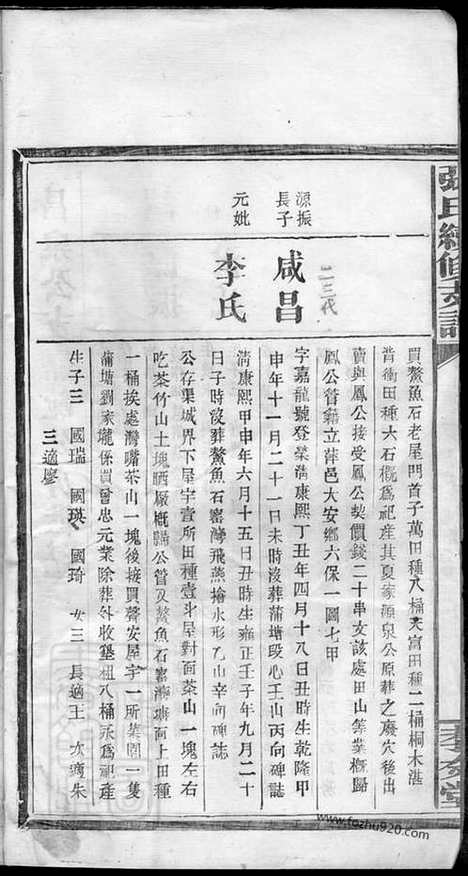 張氏續修支譜
孝友堂
買鰲魚石老屋門首子萬田種八桶夾富田種二桶桐木湛
背衝田種六石概為祀産其夏家源泉公原葬之廢穴後出
賣與鳳公接受鳳公契價錢二十串文該處田山等業概歸
鳳公管籍立萍邑大安鄉六保一圖七甲
二三代
源振長子
咸昌
字嘉龍號登榮清康熙丁丑年四月十八日丑時生乾隆甲
申年十一月二十一日未時没葬蒲塘段心壬山丙向碑誌
元妣
李氏
清康熙甲申年六月十五日丑時生雍正壬子年九月二十
日子時没葬鰲魚石窰灣飛燕搶水形乙山辛向碑誌
公存栗城界下屋宇壹所田種壹斗屋對面茶山一塊左右
吃茶竹山土塊晒厰概歸公管又鰲魚石窰灣塘面上田種
一桶挨處灣嘴茶山一塊後接買馨安屋宇一所菜園一隻
蒲塘劉家壠係買曾忠元業除葬外收墾租八桶永為祀産
生子三 國瑞 國瑛 國琦 女三 長適王 次適朱
三適廖
www.fozhu920.com